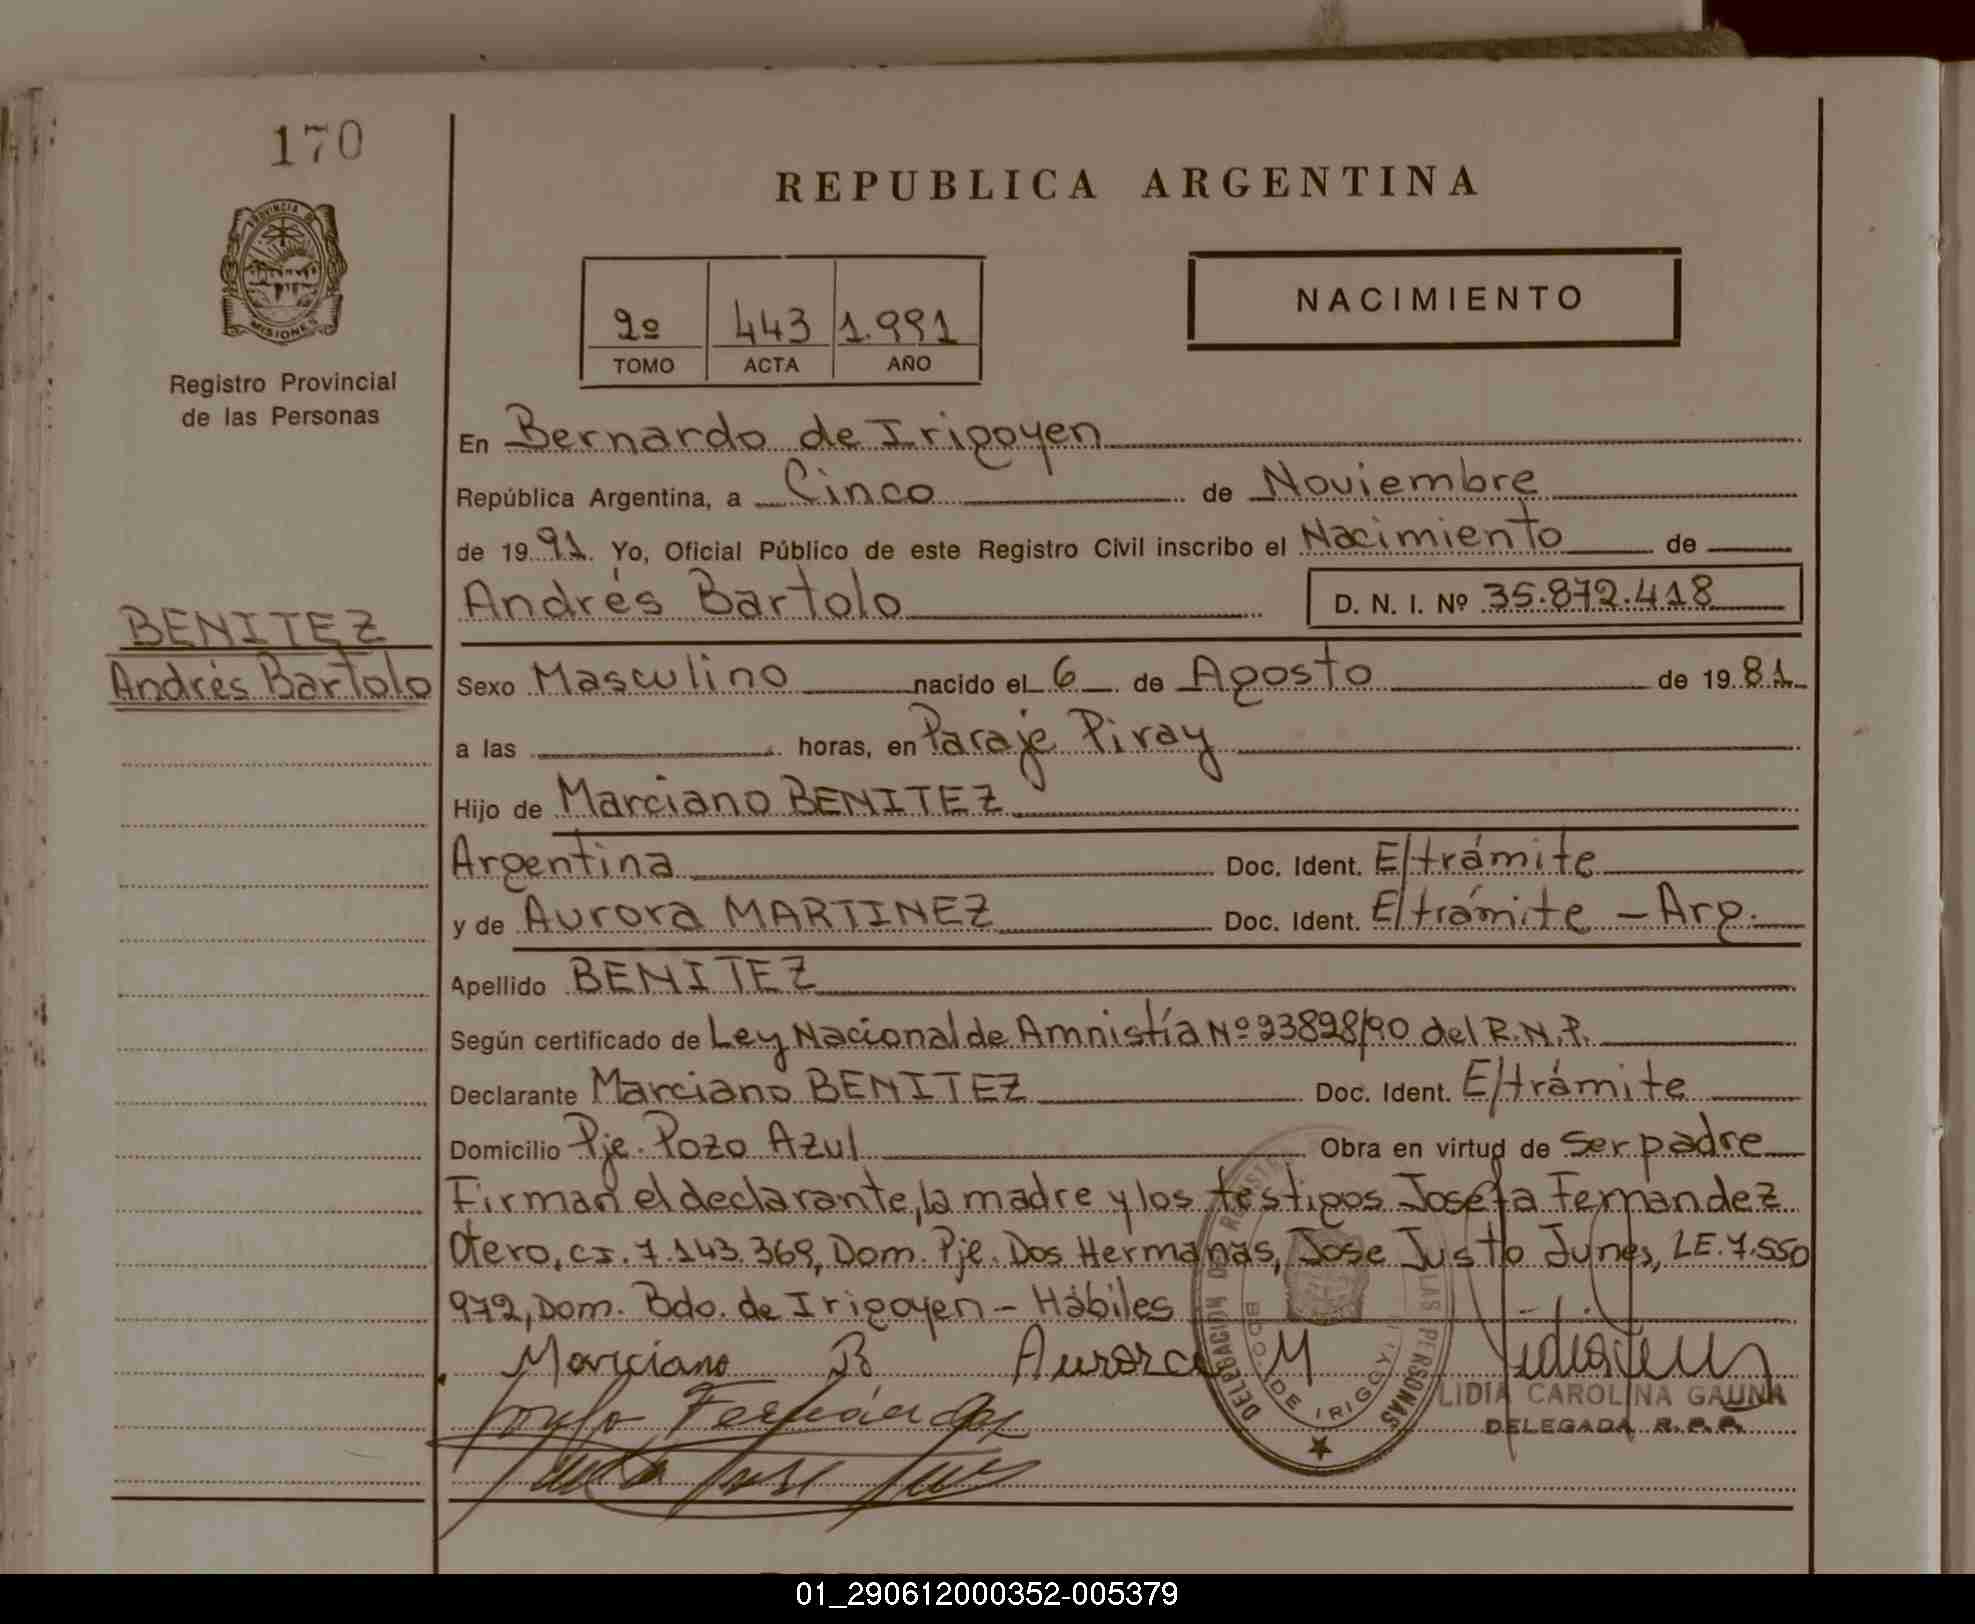 170
REPUBLICA ARGENTINA
PROVINCIA DE
MISIONES
Registro Provincial
de las Personas
2º 443 1.991
TOMO ACTA AÑO
NACIMIENTO
En Bernardo de Irigoyen
República Argentina, a Cinco de Noviembre
de 1991. Yo, Oficial Público de este Registro Civil inscribo el Nacimiento de
Andrés Bartolo D. N. I. Nº 35.872.418
BENITEZ
Andrés Bartolo
Sexo Masculino nacido el 6 de Agosto de 1981
a las horas, en Paraje Piray
Hijo de Marciano BENITEZ
Argentina Doc. Ident. E/trámite
y de Aurora MARTINEZ Doc. Ident. E/trámite - Arg.
Apellido BENITEZ
Según certificado de Ley Nacional de Amnistía Nº 23828/90 del R.N.P.
Declarante Marciano BENITEZ Doc. Ident. E/trámite
Domicilio Pje. Pozo Azul Obra en virtud de ser padre
Firman el declarante, la madre y los testigos Josefa Fernandez
Otero, CI. 7.143.369, Dom. Pje. Dos Hermanas, Jose Justo Junes, LE. 7.550
972, Dom. Bdo. de Irigoyen - Hábiles
Marciano B Aurora M
Fernández
LIDIA CAROLINA GAUNA
DELEGADA R.P.P.
01_290612000352-005379